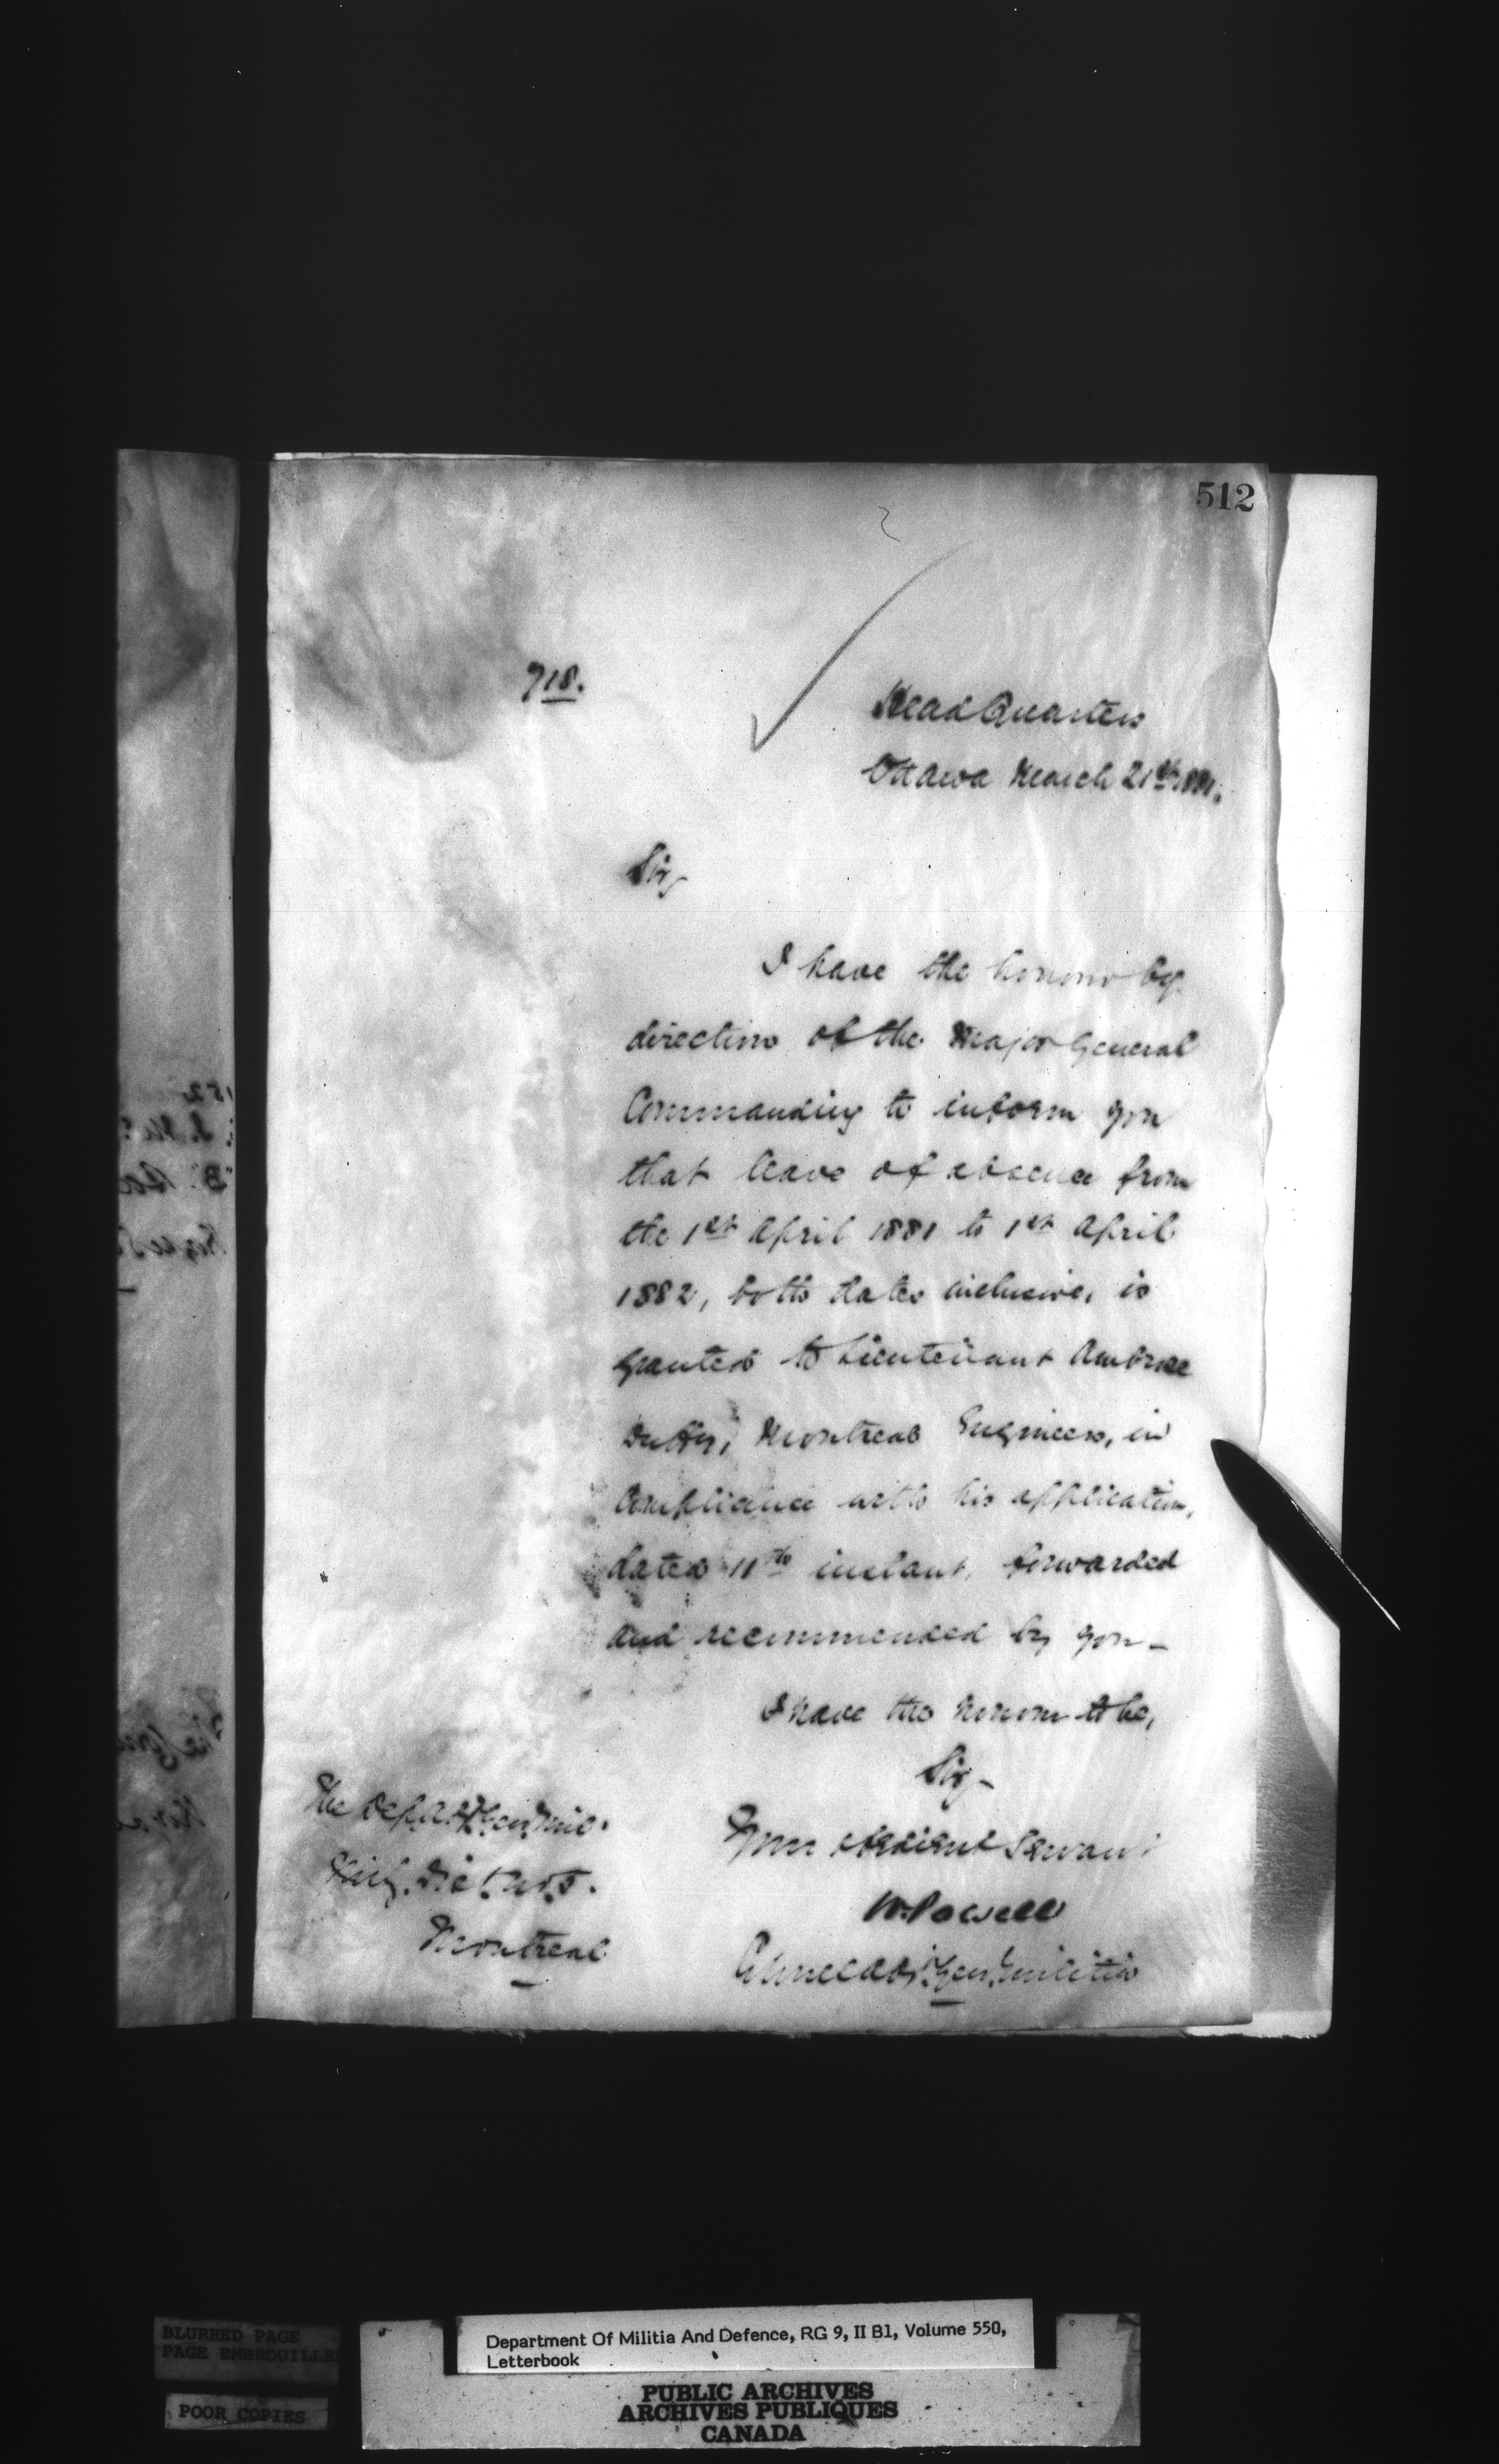 512
718.
Head Quarters
Ottawa March 21st 1881.
Sir,
I have the honour by
direction of the Major General
Commanding to inform you
that leave of absence from
the 1st April 1881 to 1st April
1882, both dates inclusive, is
granted to Lieutenant Ambrose
Duffy, Montreal Engineers, in
compliance with his application,
dated 11th instant, forwarded
and recommended by you_
I have the honour to be,
Sir_
Your obedient Servant
W. Powell
Adjt. Genl. Militia
The Dep. Adjt. Genl. Mil.
Mily. Dist. No. 5.
Montreal
BLURRED PAGE
PAGE EMBROUILLE
POOR COPIES
Department Of Militia And Defence, RG 9, II B1, Volume 550,
Letterbook
PUBLIC ARCHIVES
ARCHIVES PUBLIQUES
CANADA